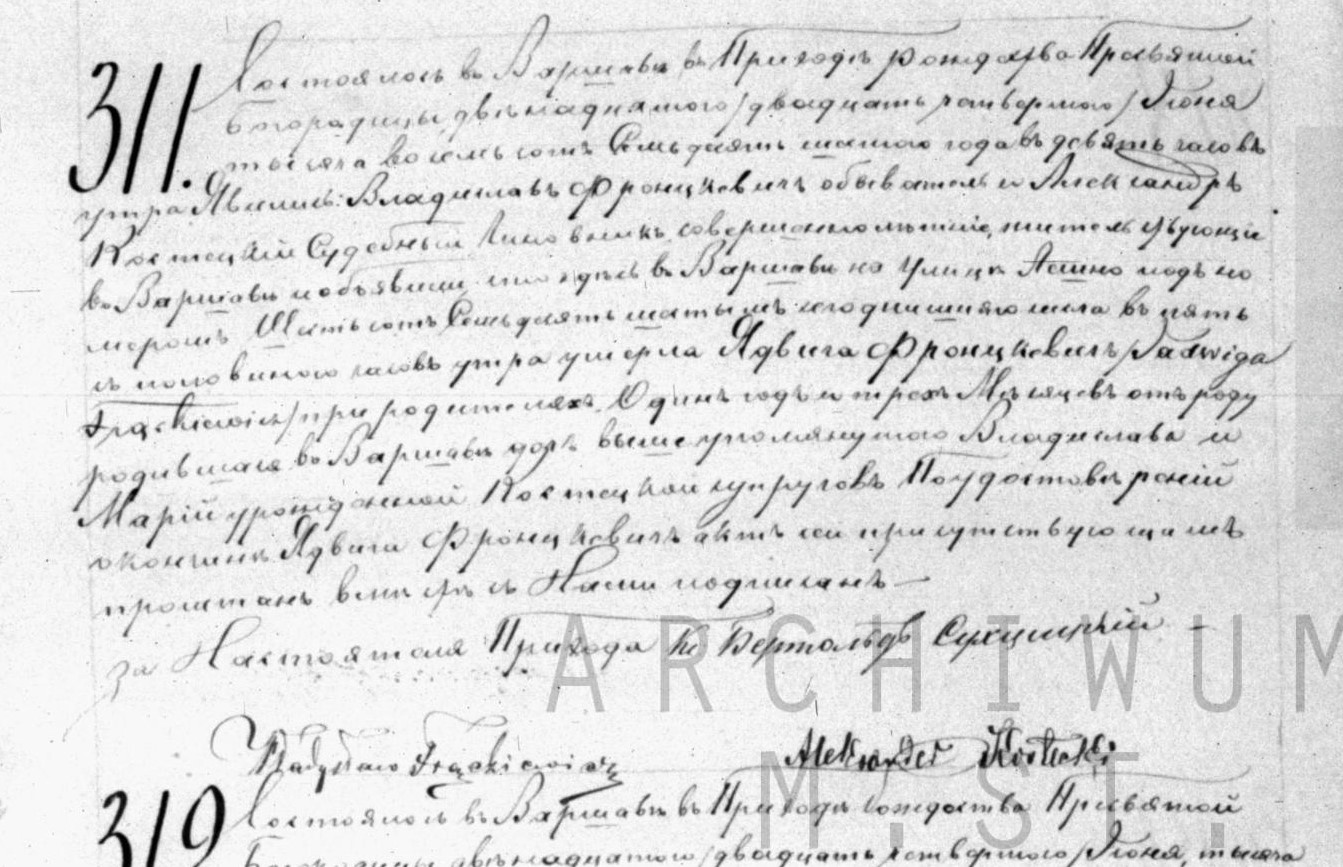 311.
Состоялось въ Варшавѣ въ Приходѣ Рождества Пресвятой
Богородицы, двѣнадцатого /двадцать четвертого/ Іюня
тысяча восемьсотъ Семьдесятъ шестого года въ девять часовъ
утра Явились: Владиславъ Фронцкевичъ обыватель и Александръ
Костецкій Судебный Чиновникъ, совершеннолѣтніе, жительствующіе
въ Варшавѣ и объявили, что здѣсь въ Варшавѣ на Улицѣ подъ но
меромъ Шестьсотъ Семьдесятъ шестымъ сегоднишняго числа въ пять
съ половиною часовъ утра умерла Ядвига Фронцкевичъ /Jadwiga
Frąckiewicz/ при родителяхъ, Одинъ годъ и трехъ Мѣсяцевъ отъ роду
родившаяся въ Варшавѣ дочь вышеупомянутого Владислава и
Марій урожденной Костецкой супруговъ По удостовѣреній
окончинѣ Ядвиги Фронцкевичъ актъ сей присутствующимъ
прочитанъ вмѣстѣ съ Нами подписанъ —
за Настоятеля Прихода Кс Бертольдъ —
Władysław Frąckiewicz Aleksander Kostecki
ARCHIWUM
M. ST.
312 Состоялось въ Варшавѣ въ Приходѣ Рождества Пресвятой
Богородицы двѣнадцатого /двадцать четвертого/ Іюня тысяча